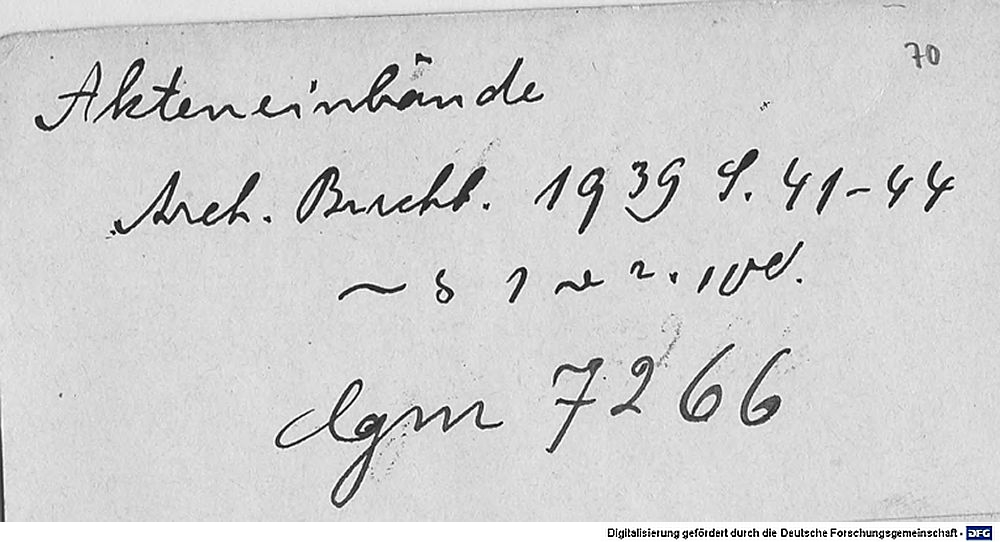 70
Akteneinbände
Arch. Buchb. 1939 S. 41-44
cgm 7266
Digitalisierung gefördert durch die Deutsche Forschungsgemeinschaft - DFG